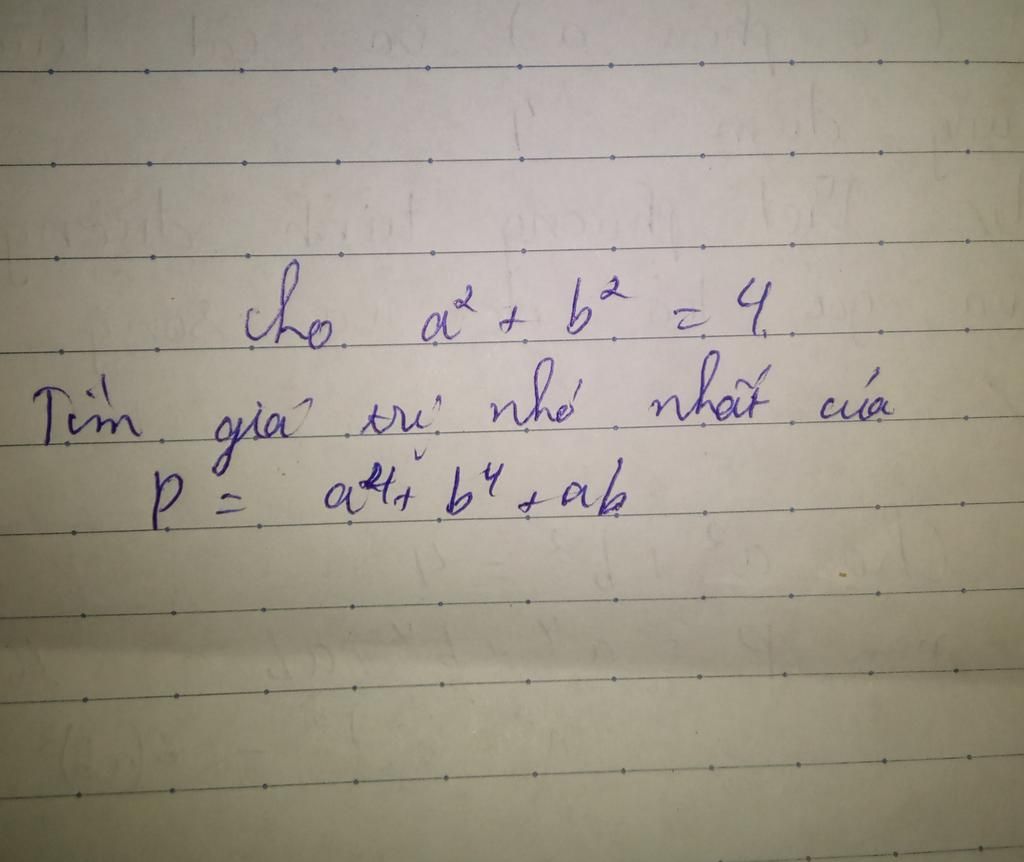 Cho a² + b² = 4.
Tìm giá trị nhỏ nhất của
P = a⁴ + b⁴ + ab